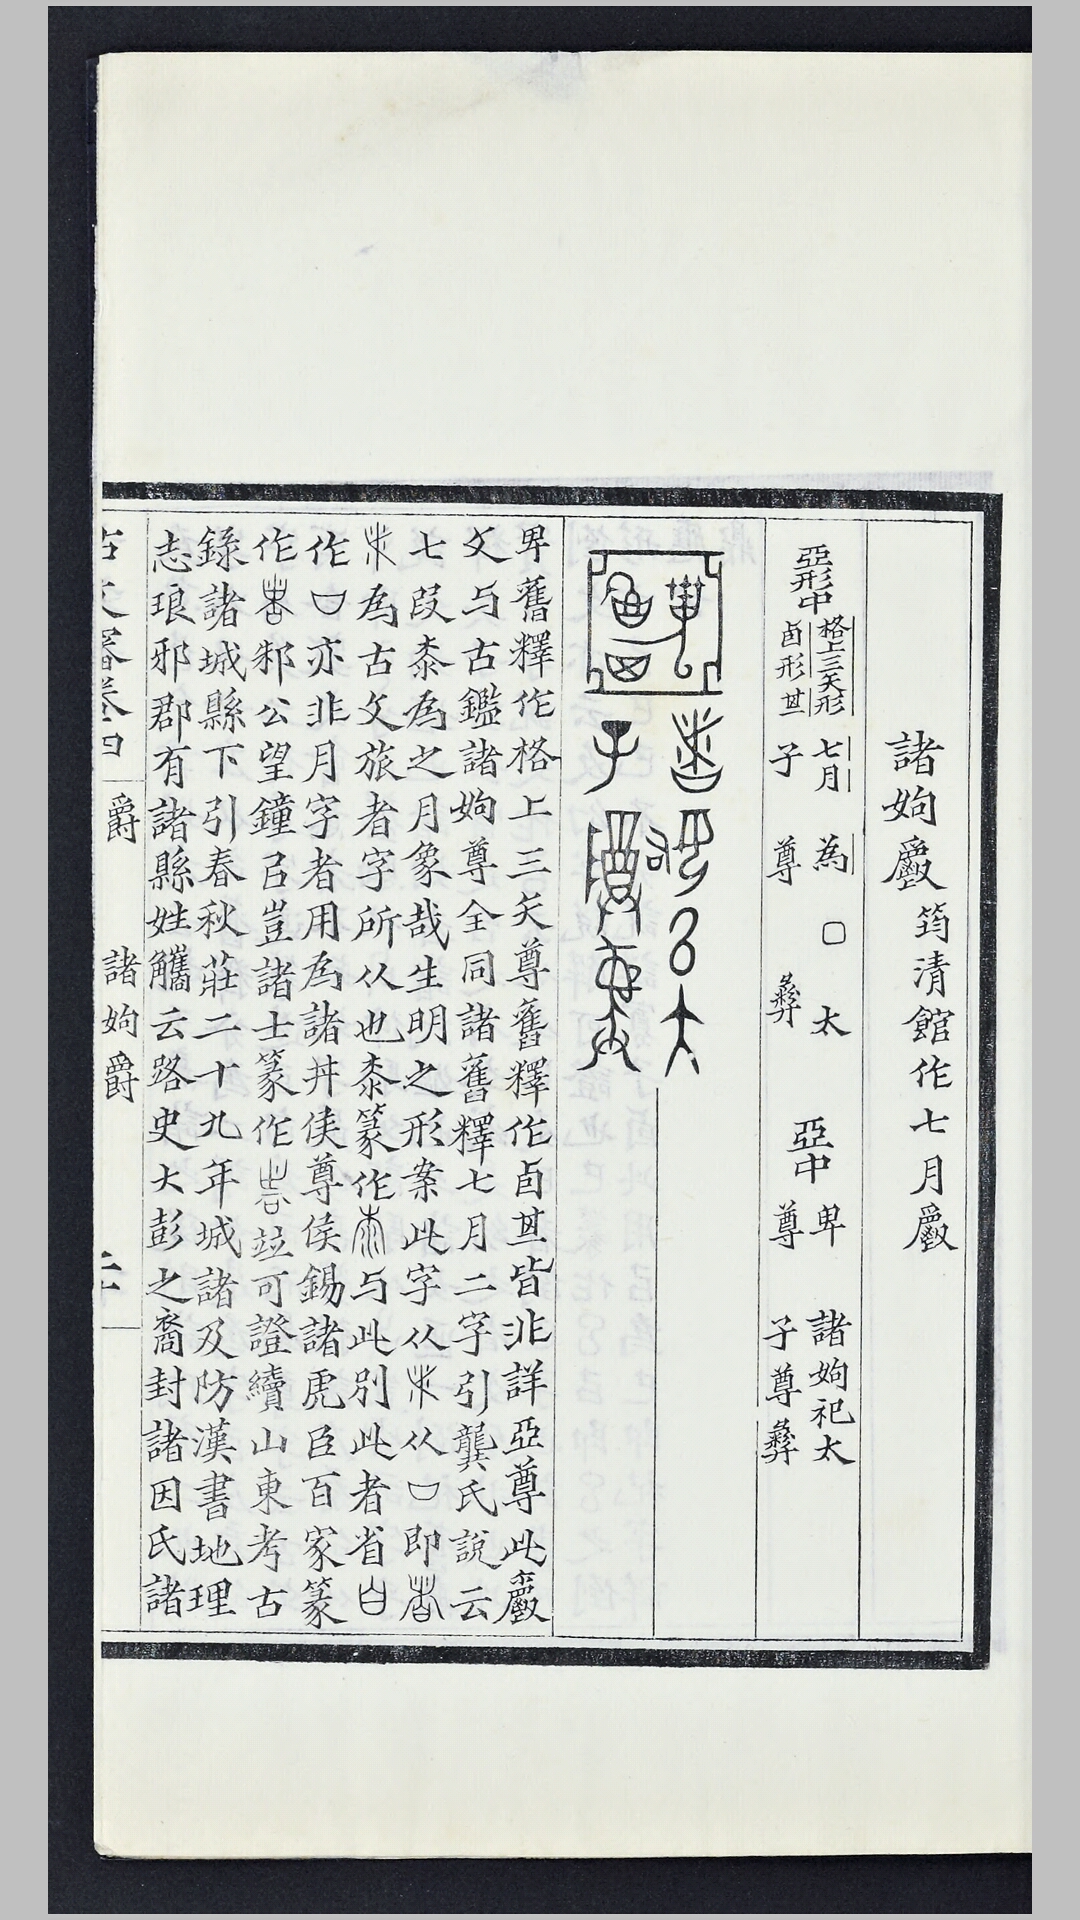 諸姁爵筠清館作七月爵
亞形中
格上三矢形
卣形㽕
七月
子
為 □ 太
尊 彝
亞中
卑 諸姁祀太
尊 子尊彝
卑舊釋作格上三矢尊舊釋作卣㽕皆非詳亞尊此爵
文与古鑑諸姁尊全同諸舊釋七月二字引龔氏說云
七叚桼為之月象哉生明之形案此字从从即
為古文旅者字所从也桼篆作与此別此者省白
作亦非月字者用為諸丼侯尊侯錫諸虎臣百家篆
作邾公望鐘㠯豈諸士篆作竝可證續山東考古
錄諸城縣下引春秋莊二十九年城諸及防漢書地理
志琅邪郡有諸縣姓觿云路史大彭之裔封諸因氏諸
古文審卷四 爵 諸姁爵